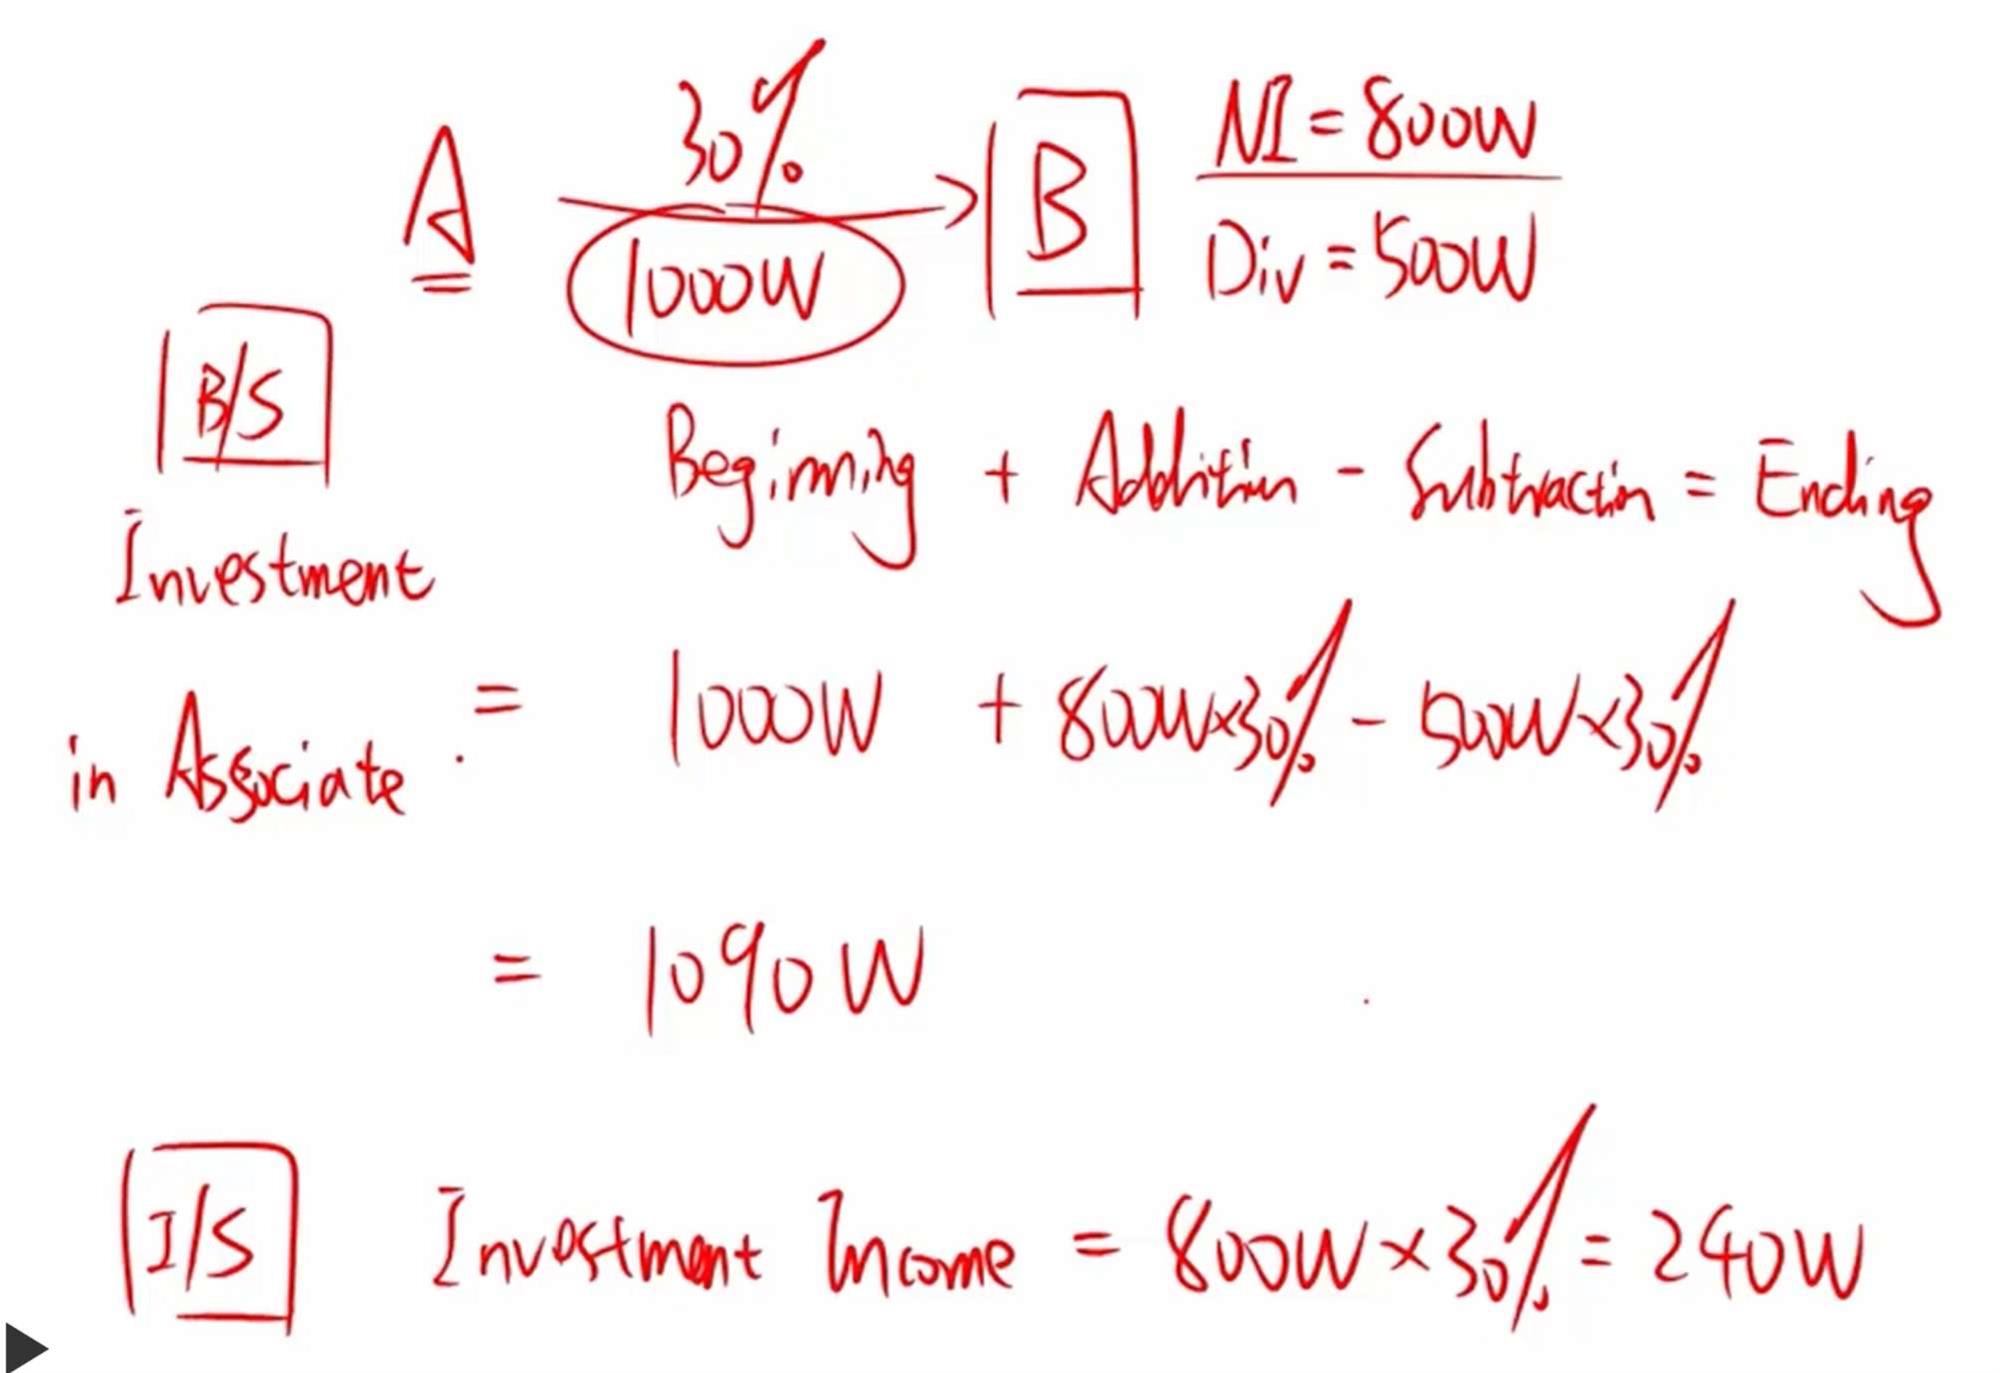 30%
A → B NI = 800W
1000W Div = 500W
B/S
Beginning + Addition - Subtraction = Ending
Investment
in Associate. = 1000W + 800W×30% - 500W×30%
= 1090W
I/S Investment Income = 800W×30% = 240W